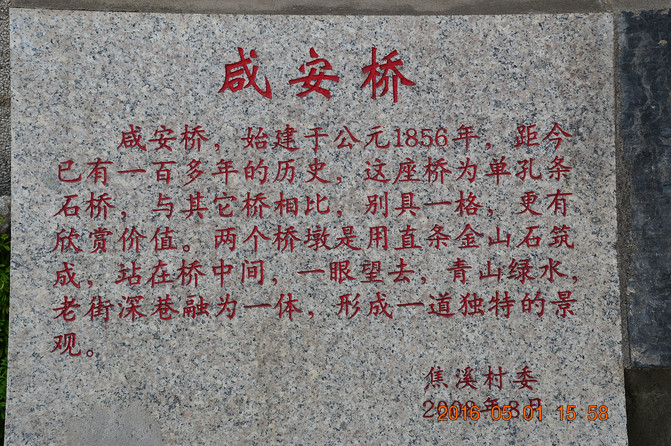 咸安桥
咸安桥，始建于公元1856年，距今
已有一百多年的历史，这座桥为单孔条
石桥，与其它桥相比，别具一格，更有
欣赏价值。两个桥墩是用直条金山石筑
成，站在桥中间，一眼望去，青山绿水，
老街深巷融为一体，形成一道独特的景
观。
焦溪村委
年8月
2016 05 01 15:58